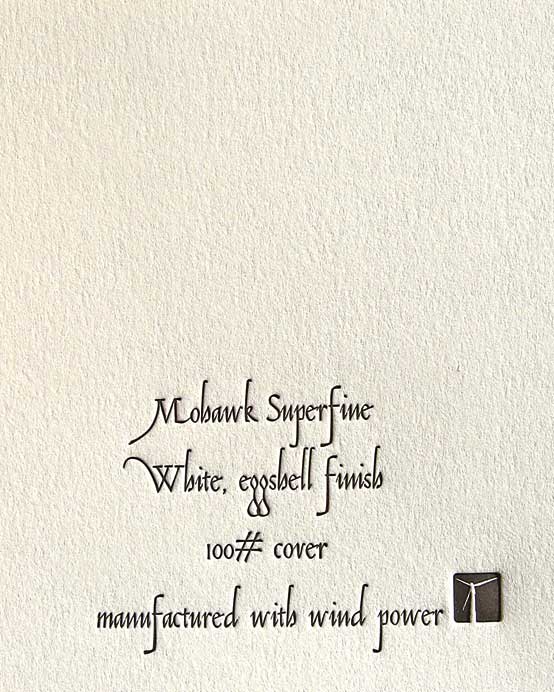 Mohawk Superfine
White, eggshell finish
100# cover
manufactured with wind power